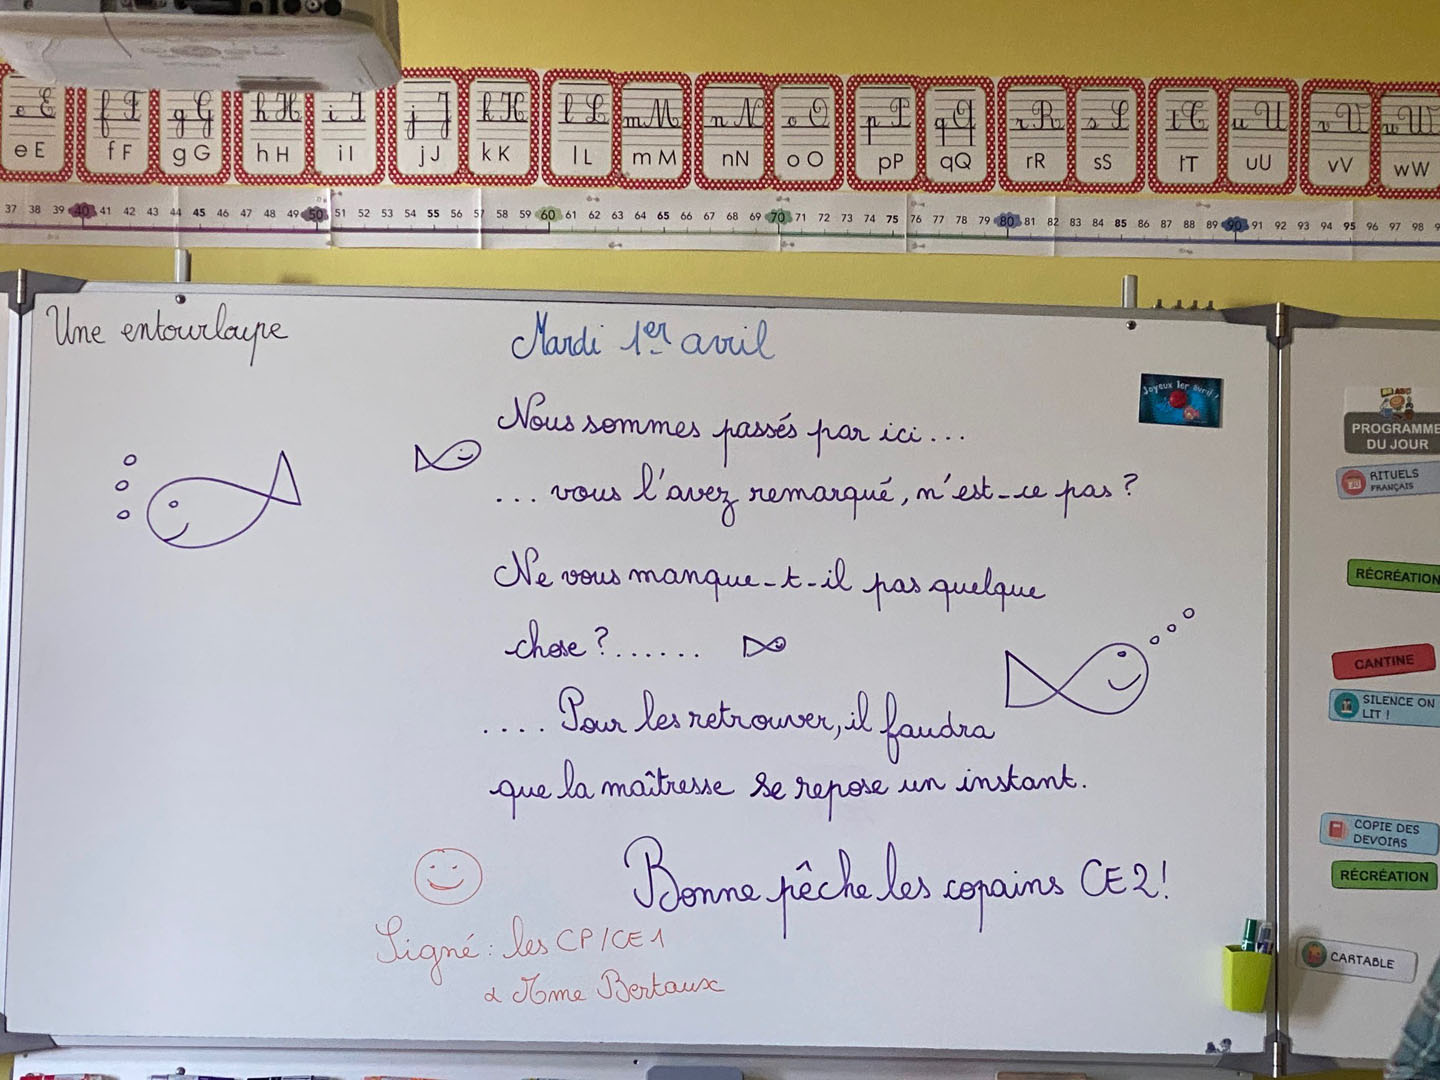 e E f F g G h H i I j J k K l L m M n N o O p P q Q r R s S t T u U v V w W
e E f F g G h H i I j J k K l L m M nN o O pP qQ rR sS tT uU vV wW
37 38 39 40 41 42 43 44 45 46 47 48 49 50 51 52 53 54 55 56 57 58 59 60 61 62 63 64 65 66 67 68 69 70 71 72 73 74 75 76 77 78 79 80 81 82 83 84 85 86 87 88 89 90 91 92 93 94 95 96 97 98
Une entourloupe
Mardi 1er avril
Joyeux 1er avril !
Nous sommes passés par ici...
... vous l'avez remarqué, n'est-ce pas ?
Ne vous manque-t-il pas quelque
chose ?......
.... Pour les retrouver, il faudra
que la maîtresse se repose un instant.
Bonne pêche les copains CE2!
Signé : les CP/CE1
& Mme Bertaux
PROGRAMME
DU JOUR
RITUELS
FRANÇAIS
RÉCRÉATION
CANTINE
SILENCE ON
LIT !
COPIE DES
DEVOIRS
RÉCRÉATION
CARTABLE